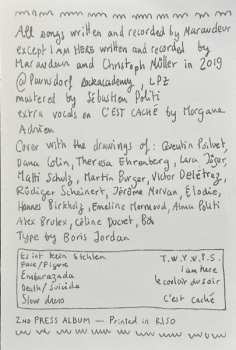 All songs written and recorded by Maraudeur
except I AM HERE written and recorded by
Maraudeur and Christoph Müller in 2019
@ Paunsdorf Rockacademy, LPZ
mastered by Sébastien Politi
extra vocals on C'EST CACHÉ by Morgane
Adrien
Cover with the drawings of: Quentin Poilvet,
Dana Colin, Theresa Ehrenberg, Lara Jäger,
Matti Schulz, Martin Burger, Victor Delétraz,
Rüdiger Scheinert, Jérôme Norvan, Elodie,
Hannes Birkholz, Emeline Mornand, Alma Politi
Alex Brulex, Céline Ducret, Bob
Type by Boris Jordan
Es ist kein Stehlen
Face/Figure
Embarazada
Death/Suicida
Slow dress
T.W.Y.W.P.S.
I am here
le couloir du soir
C'est caché
2ND PRESS ALBUM — Printed in RISO